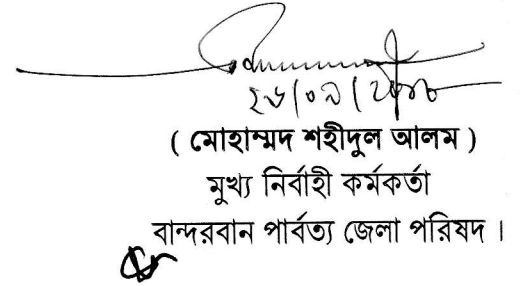 ( মোহাম্মদ শহীদুল আলম )
মুখ্য নির্বাহী কর্মকর্তা
বান্দরবান পার্বত্য জেলা পরিষদ ।